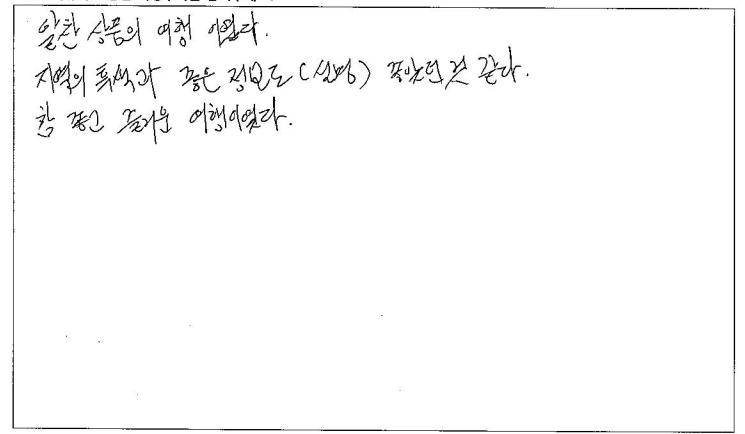 알찬 상품의 여행 이였다.
지역의 특색과 좋은 정보도 (설명) 좋았던 것 같다.
참 좋고 즐거운 여행이였다.